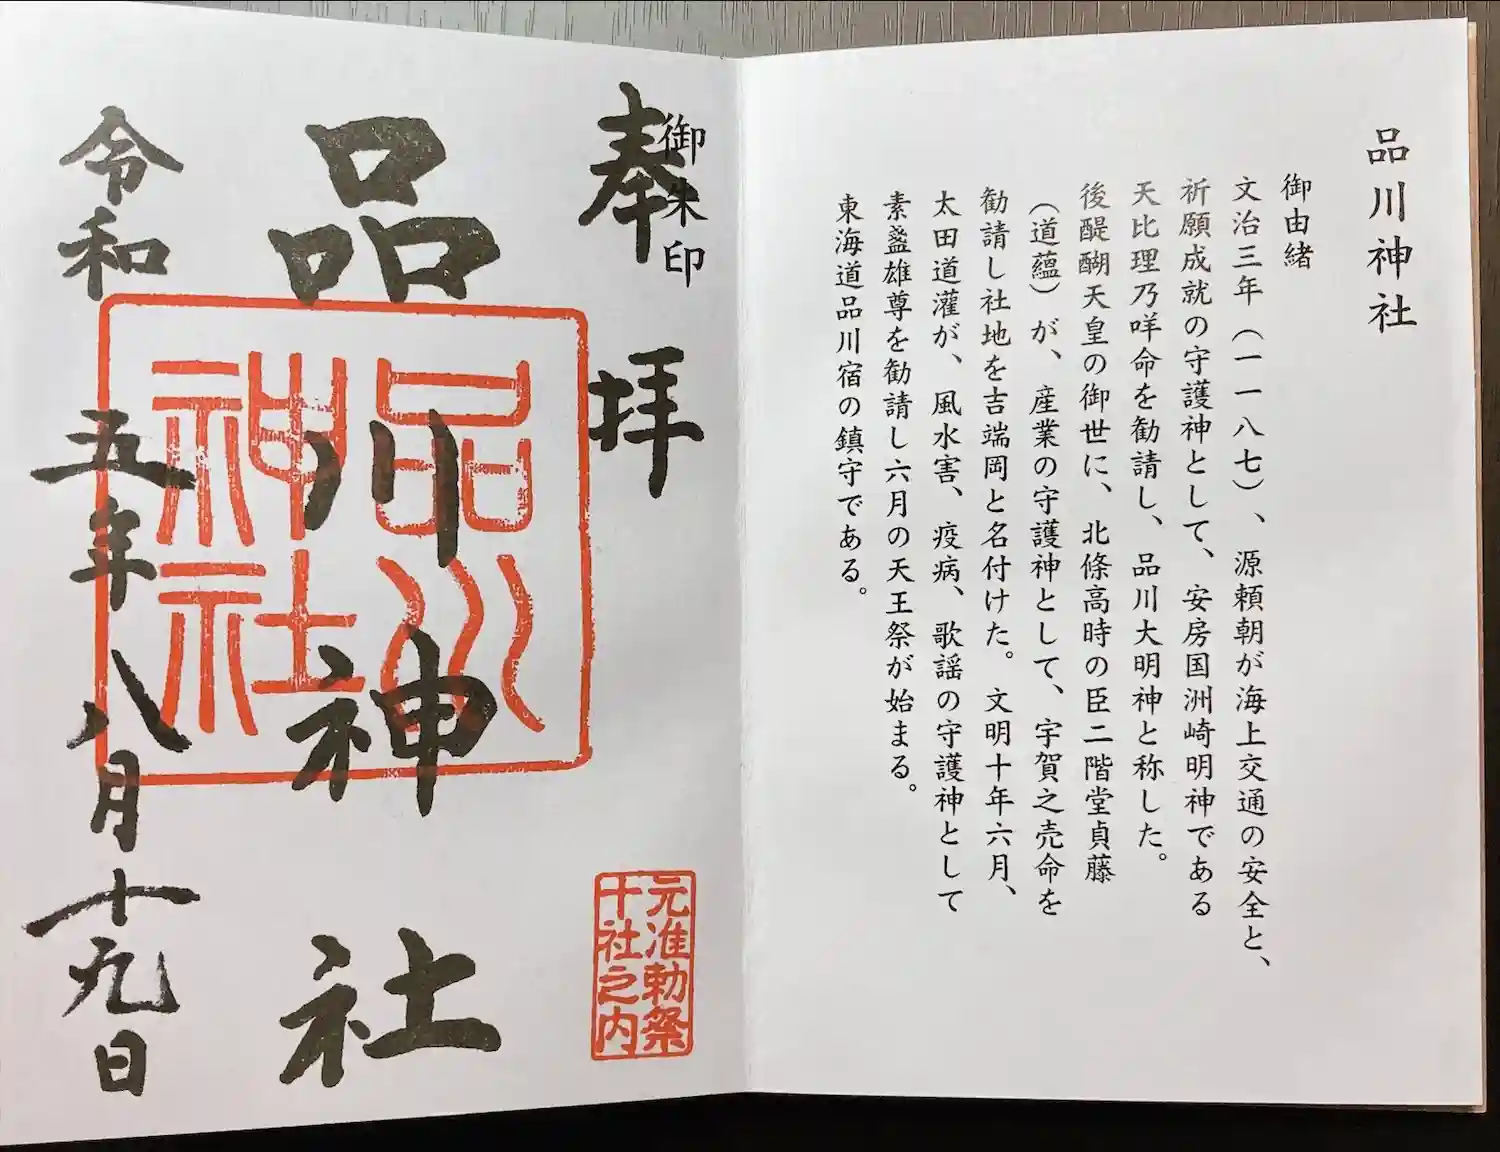 品川神社
御由緒
文治三年（一一八七）、源頼朝が海上交通の安全と、
祈願成就の守護神として、安房国洲崎明神である
天比理乃咩命を勧請し、品川大明神と称した。
後醍醐天皇の御世に、北條高時の臣二階堂貞藤
（道蘊）が、産業の守護神として、宇賀之売命を
勧請し社地を吉端岡と名付けた。文明十年六月、
太田道灌が、風水害、疫病、歌謡の守護神として
素盞雄尊を勧請し六月の天王祭が始まる。
東海道品川宿の鎮守である。
御朱印
奉拝
元准勅祭
十社之内
品川神社
品川
神社
令和五年八月十九日